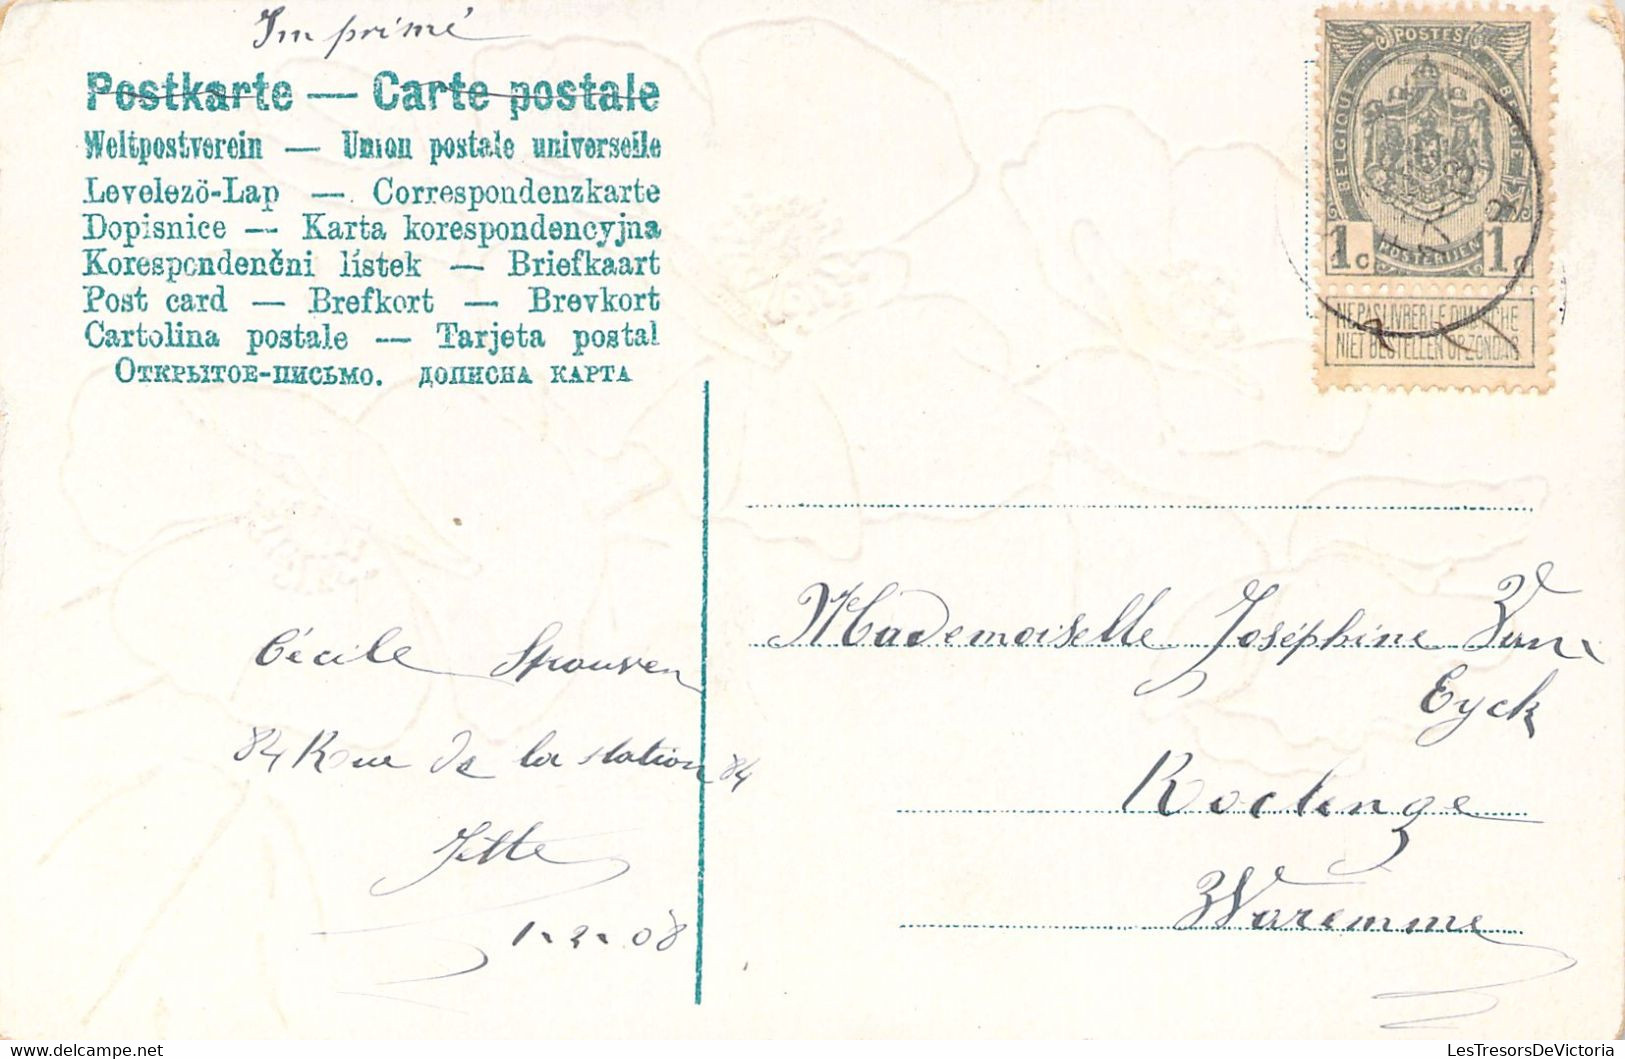 Imprimé
Postkarte — Carte postale
Weltpostverein — Union postale universelle
Levelezö-Lap — Correspondenzkarte
Dopisnice — Karta korespondencyjna
Korespondenční lístek — Briefkaart
Post card — Brefkort — Brevkort
Cartolina postale — Tarjeta postal
Открытое-письмо. дописна карта
POSTES
BELGIQUE
BELGIE
1c POSTERIJEN 1c
NE PAS LIVRER LE DIMANCHE
NIET BESTELLEN OP ZONDAG
Mademoiselle Joséphine Van
Eyck
Roclenge
Waremme
Cécile Strouven
84 Rue de la station 84
Jette
1-2-08
LesTresorsDeVictoria